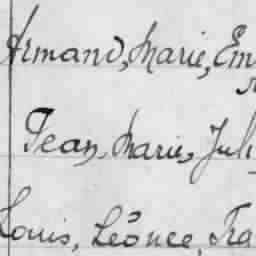 Armand, Marie, Em
Jean, Marie, Juli
Louis, Léonce, Fra